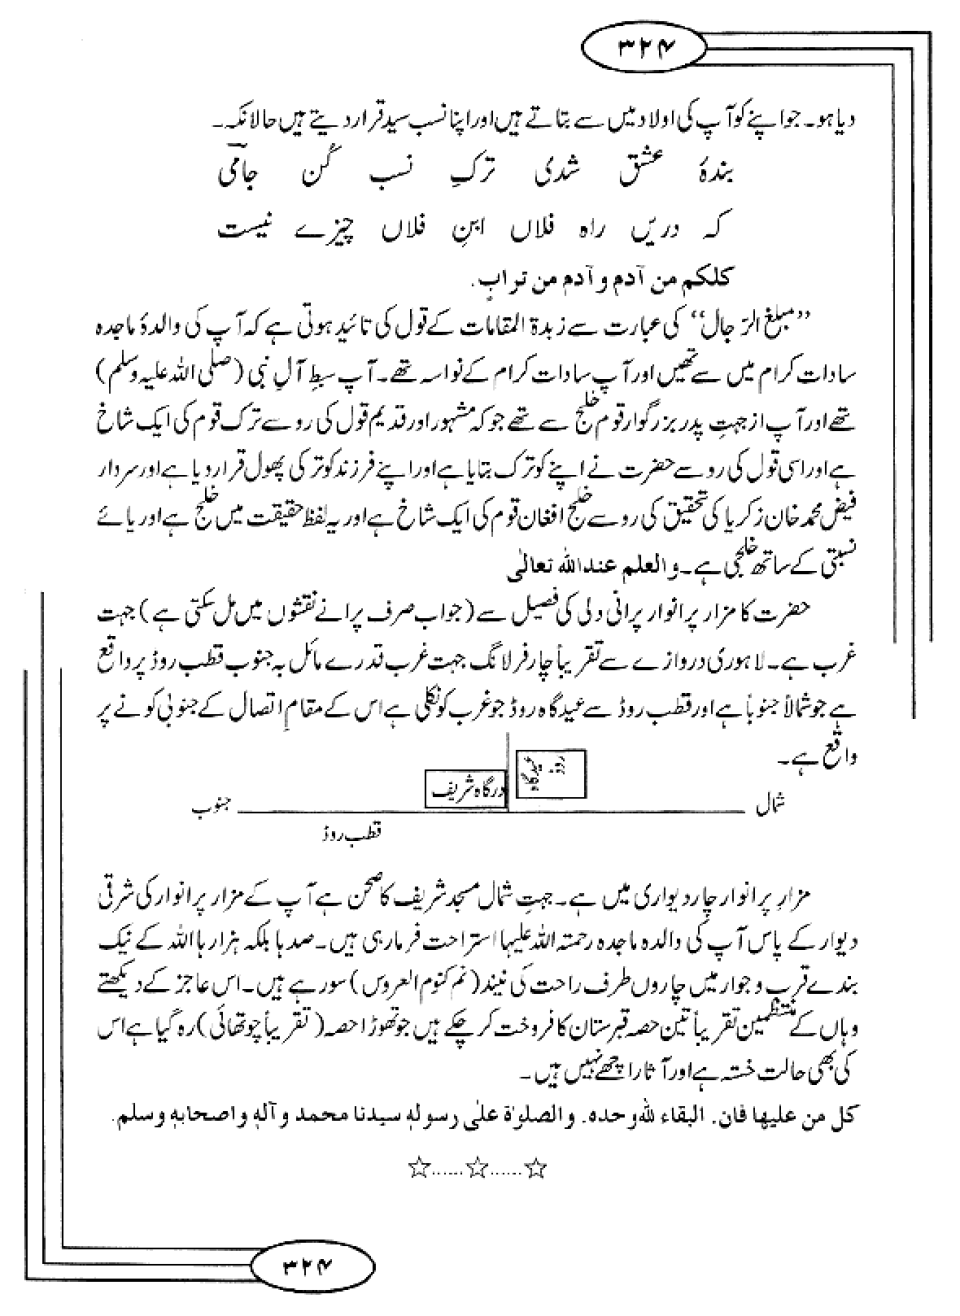 ۳۲۴
دیا ہو۔ جو اپنے کو آپ کی اولاد میں سے بتاتے ہیں اور اپنا نسب سید قرار دیتے ہیں حالانکہ۔
بندۂ عشق شدی ترکِ نسب کُن جامیؔ
کہ دریں راہ فلاں ابنِ فلاں چیزے نیست
کلکم من آدم و آدم من تراب.
”مبلغ الرّجال“ کی عبارت سے زبدۃ المقامات کے قول کی تائید ہوتی ہے کہ آپ کی والدۂ ماجدہ
سادات کرام میں سے تھیں اور آپ سادات کرام کے نواسہ تھے۔ آپ سبطِ آلِ نبی (صلی اللہ علیہ وسلم)
تھے اور آپ از جہتِ پدر بزرگوار قوم خلج سے تھے جو کہ مشہور اور قدیم قول کی رو سے ترک قوم کی ایک شاخ
ہے اور اسی قول کی رو سے حضرت نے اپنے کو ترک بتایا ہے اور اپنے فرزند کو ترکی پھول قرار دیا ہے اور سردار
فیض محمد خان زکریا کی تحقیق کی رو سے خلج افغان قوم کی ایک شاخ ہے اور یہ لفظ حقیقت میں خلج ہے اور یائے
نسبتی کے ساتھ خلجی ہے۔ والعلم عنداللہ تعالیٰ
حضرت کا مزار پر انوار پرانی دلی کی فصیل سے (جو اب صرف پرانے نقشوں میں مل سکتی ہے) جہت
غرب ہے۔ لاہوری دروازے سے تقریباً چار فرلانگ جہت غرب قدرے مائل بہ جنوب قطب روڈ پر واقع
ہے جو شمالاً جنوباً ہے اور قطب روڈ سے عید گاہ روڈ جو غرب کو نکلی ہے اس کے مقامِ اتصال کے جنوبی کونے پر
واقع ہے۔
عیدگاہ روڈ
درگاہ شریف
شمال جنوب
قطب روڈ
مزارِ پر انوار چار دیواری میں ہے۔ جہتِ شمال مسجد شریف کا صحن ہے آپ کے مزار پر انوار کی شرقی
دیوار کے پاس آپ کی والدہ ماجدہ رحمتہ اللہ علیہا استراحت فرما رہی ہیں۔ صدہا بلکہ ہزارہا اللہ کے نیک
بندے قرب و جوار میں چاروں طرف راحت کی نیند (نم کنوم العروس) سو رہے ہیں۔ اس عاجز کے دیکھتے
وہاں کے منتظمین تقریباً تین حصہ قبرستان کا فروخت کر چکے ہیں جو تھوڑا حصہ (تقریباً چوتھائی) رہ گیا ہے اس
کی بھی حالت خستہ ہے اور آثار اچھے نہیں ہیں۔
کل من علیھا فان. البقاء للہ وحدہ. والصلوٰۃ علیٰ رسولہٖ سیدنا محمد وآلہٖ واصحابہٖ وسلم.
☆......☆......☆
۳۲۴